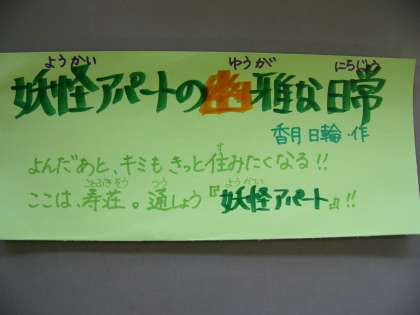 ようかい ゆうが にちじょう
妖怪アパートの幽雅な日常
香月日輪・作
す
よんだあと、キミもきっと住みたくなる!!
ことぶきそう つう ようかい
ここは、寿荘。通しょう『妖怪アパート』!!